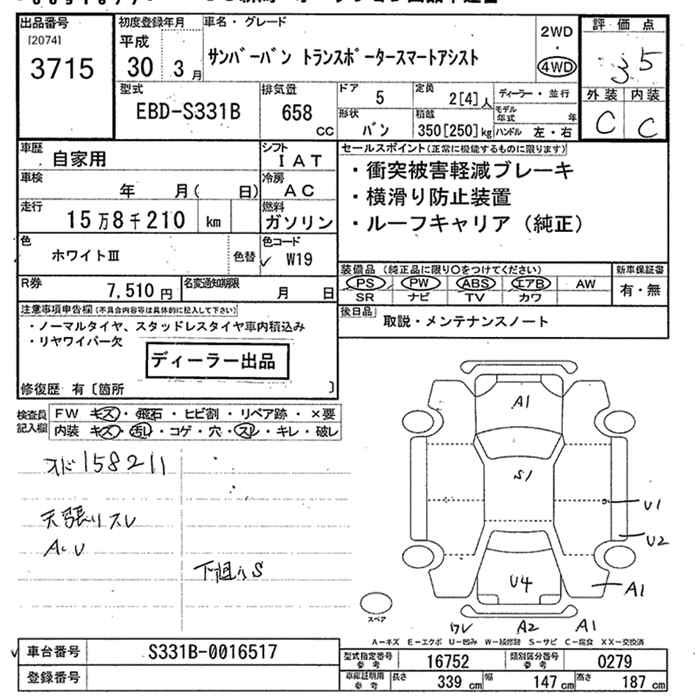 出品番号
[2074]
3715
初度登録年月
平成
30 3月
車名・グレード
サンバーバン トランスポータースマートアシスト
2WD
4WD
評価点
3.5
外装 内装
C C
型式
EBD-S331B
排気量
658
cc
ドア
5
定員
2[4]人
ディーラー・並行
モデル年式 年
形状
バン
積載
350[250]kg
ハンドル 左・右
車歴
自家用
シフト
IAT
車検
年 月( 日)
冷房
AC
走行
15万8千210 km
燃料
ガソリン
色
ホワイトIII
色替
色コード
W19
R券
7,510円
名変通知期限
月 日
セールスポイント(正常に機能するものに限ります)
・衝突被害軽減ブレーキ
・横滑り防止装置
・ルーフキャリア(純正)
装備品(純正品に限り○をつけてください)
PS PW ABS エアB AW
SR ナビ TV カワ
新車保証書
有・無
後日品
取説・メンテナンスノート
注意事項申告欄(不具合内容等は具体的に記入して下さい)
・ノーマルタイヤ、スタッドレスタイヤ車内積込み
・リヤワイパー欠
ディーラー出品
修復歴 有〔箇所 〕
検査員記入欄
FW キズ・飛石・ヒビ割・リペア跡・×要
内装 キズ・汚れ・コゲ・穴・スレ・キレ・破レ
スド158211
天張りスレ
AとU
下廻りS
A1
S1
U1
U2
U4
A1
A2
A1
スペア
A−キズ E−エクボ U−凹み W−補修跡 S−サビ C−腐食 XX−交換済
車台番号
S331B-0016517
登録番号
型式指定番号
参考
16752
類別区分番号
参考
0279
車庫証明用
参考
長さ 339 cm
幅 147 cm
高さ 187 cm